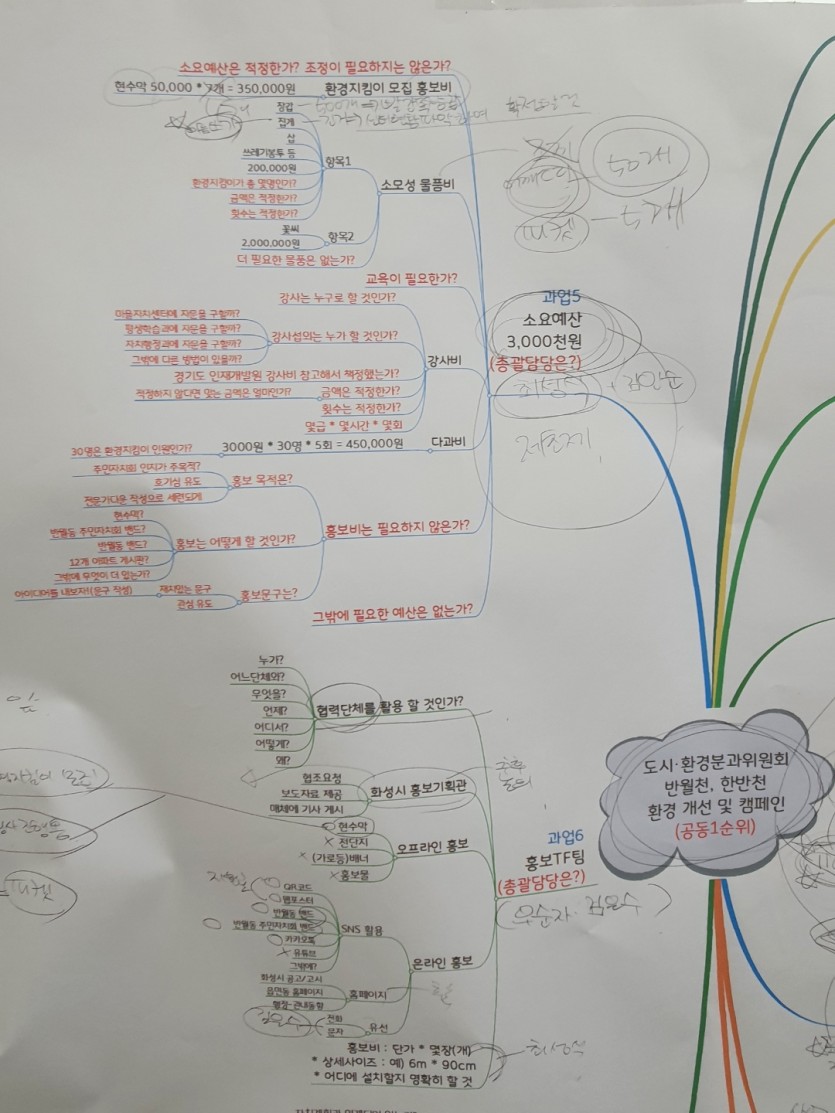 소요예산은 적정한가? 조정이 필요하지는 않은가?
현수막 50,000 * 7개 = 350,000원
환경지킴이 모집 홍보비
5개
장갑
500개
집게
삽
쓰레기봉투 등
200,000원
환경지킴이가 총 몇명인가?
금액은 적정한가?
횟수는 적정한가?
항목1
소모성 물품비
꽃씨
2,000,000원
항목2
더 필요한 물품은 없는가?
어깨띠
50개
피켓 - 5개
교육이 필요한가?
강사는 누구로 할 것인가?
마을자치센터에 자문을 구할까?
평생학습과에 자문을 구할까?
자치행정과에 자문을 구할까?
그밖에 다른 방법이 있을까?
강사섭외는 누가 할 것인가?
강사비
경기도 인재개발원 강사비 참고해서 책정했는가?
적정하지 않다면 맞는 금액은 얼마인가?
금액은 적정한가?
횟수는 적정한가?
몇급 * 몇시간 * 몇회
30명은 환경지킴이 인원인가?
3000원 * 30명 * 5회 = 450,000원
다과비
주민자치회 인지가 주목적?
호기심 유도
전문가다운 작성으로 세련되게
홍보 목적은?
현수막?
반월동 주민자치회 밴드?
반월동 밴드?
12개 아파트 게시판?
그밖에 무엇이 더 있는가?
홍보는 어떻게 할 것인가?
홍보비는 필요하지 않은가?
아이디어를 내보자!(문구 작성)
재치있는 문구
관심 유도
홍보문구는?
그밖에 필요한 예산은 없는가?
과업5
소요예산
3,000천원
(총괄담당은?)
최성식 + 김완순
누가?
어느단체와?
무엇을?
언제?
어디서?
어떻게?
왜?
협력단체를 활용 할 것인가?
협조요청
보도자료 제공
매체에 기사 게시
화성시 홍보기획관
추후
논의
현수막
전단지
(가로등)배너
홍보물
오프라인 홍보
QR코드
웹포스터
반월동 밴드
반월동 주민자치회 밴드
카카오톡
유튜브
그밖에?
SNS 활용
화성시 공고/고시
읍면동 홈페이지
행정-관내동향
홈페이지
전화
문자
유선
온라인 홍보
홍보비 : 단가 * 몇장(개)
* 상세사이즈 : 예) 6m * 90cm
* 어디에 설치할지 명확히 할 것
최성식
과업6
홍보TF팀
(총괄담당은?)
도시·환경분과위원회
반월천, 한반천
환경 개선 및 캠페인
(공동1순위)
피켓